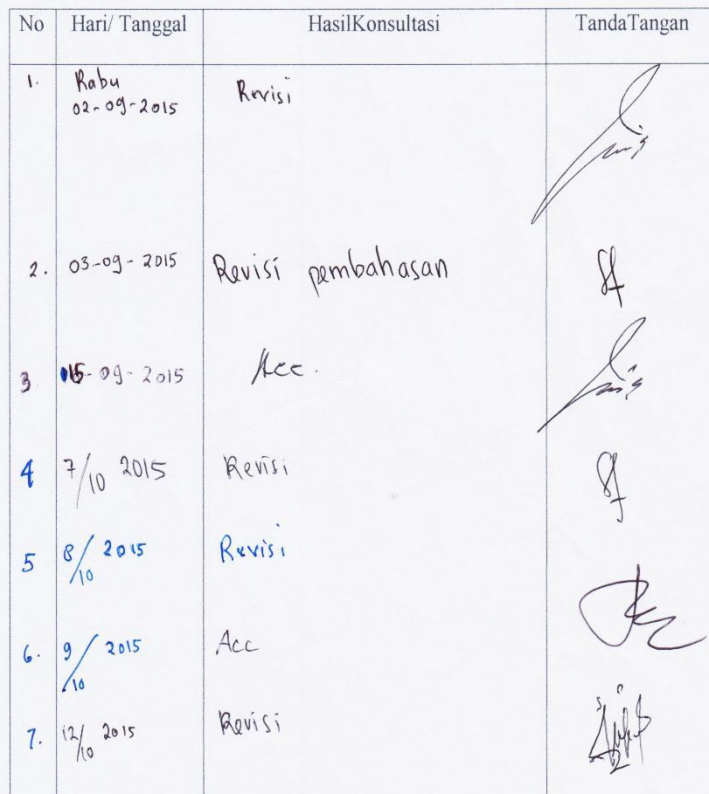 No Hari/ Tanggal HasilKonsultasi TandaTangan
1. Rabu Revisi
02-09-2015
2. 03-09-2015 Revisi pembahasan
3 15-09-2015 Acc.
4 7/10 2015 Revisi
5 8/10 2015 Revisi
6. 9/10 2015 Acc
7. 12/10 2015 Revisi